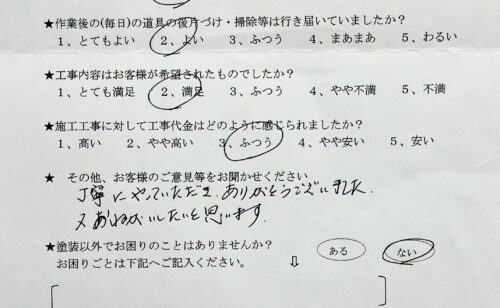 ★作業後の(毎日)の道具の後片づけ・掃除等は行き届いていましたか?
1、とてもよい 2、よい 3、ふつう 4、まあまあ 5、わるい
★工事内容はお客様が希望されたものでしたか?
1、とても満足 2、満足 3、ふつう 4、やや不満 5、不満
★施工工事に対して工事代金はどのように感じられましたか?
1、高い 2、やや高い 3、ふつう 4、やや安い 5、安い
★ その他、お客様のご意見等をお聞かせください
丁寧にやっていただき、ありがとうございました。
又おねがいしたいと思います。
★塗装以外でお困りのことはありませんか? ある ない
お困りごとは下記へご記入ください。 ⇩